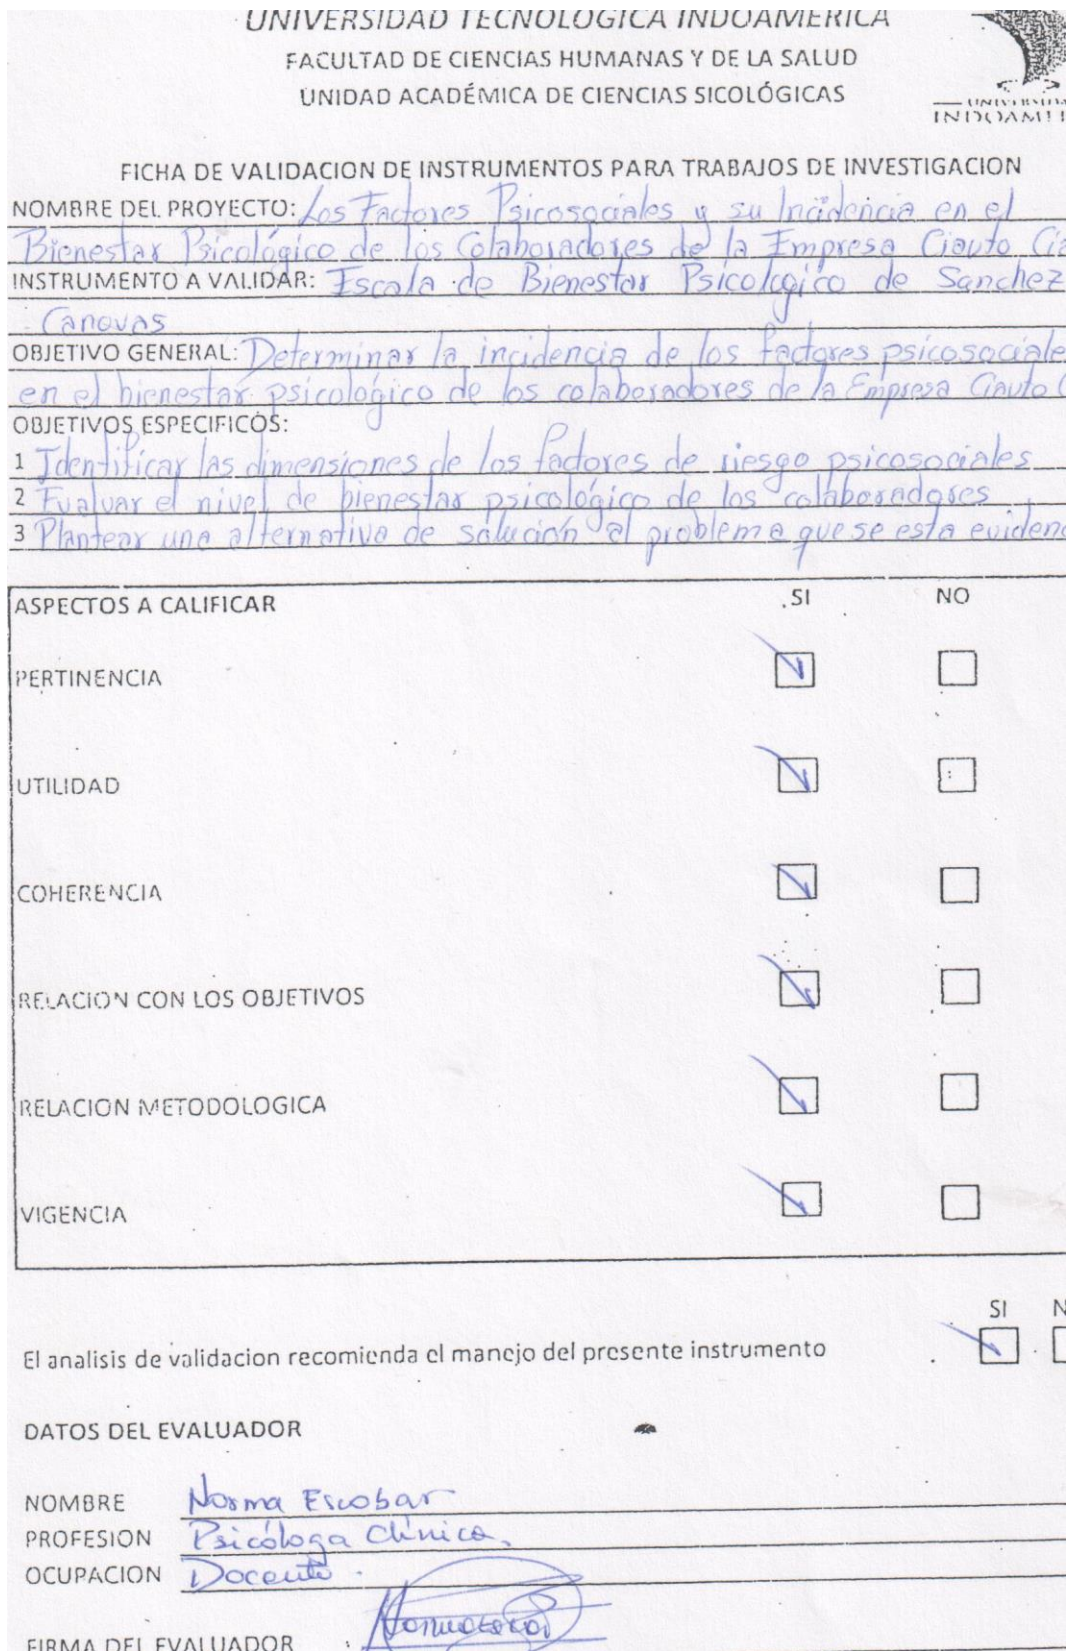 UNIVERSIDAD TECNOLÓGICA INDOAMÉRICA
FACULTAD DE CIENCIAS HUMANAS Y DE LA SALUD
UNIDAD ACADÉMICA DE CIENCIAS SICOLÓGICAS
UNIVERSIDA
INDOAMÉ
FICHA DE VALIDACION DE INSTRUMENTOS PARA TRABAJOS DE INVESTIGACION
NOMBRE DEL PROYECTO: Los Factores Psicosociales y su Incidencia en el
Bienestar Psicológico de los Colaboradores de la Empresa Ciauto
INSTRUMENTO A VALIDAR: Escala de Bienestar Psicologico de Sanchez
Canovas
OBJETIVO GENERAL: Determinar la incidencia de los factores psicosociale
en el bienestar psicológico de los colaboradores de la Empresa Ciauto
OBJETIVOS ESPECIFICOS:
1 Identificar las dimensiones de los factores de riesgo psicosociales
2 Evaluar el nivel de bienestar psicológico de los colaboradores
3 Plantear una alternativa de solución al problema que se esta evidenc
ASPECTOS A CALIFICAR SI NO
PERTINENCIA
UTILIDAD
COHERENCIA
RELACION CON LOS OBJETIVOS
RELACION METODOLOGICA
VIGENCIA
SI N
El analisis de validacion recomienda el manejo del presente instrumento
DATOS DEL EVALUADOR
NOMBRE Norma Escobar
PROFESION Psicóloga Clínica.
OCUPACION Docente.
FIRMA DEL EVALUADOR